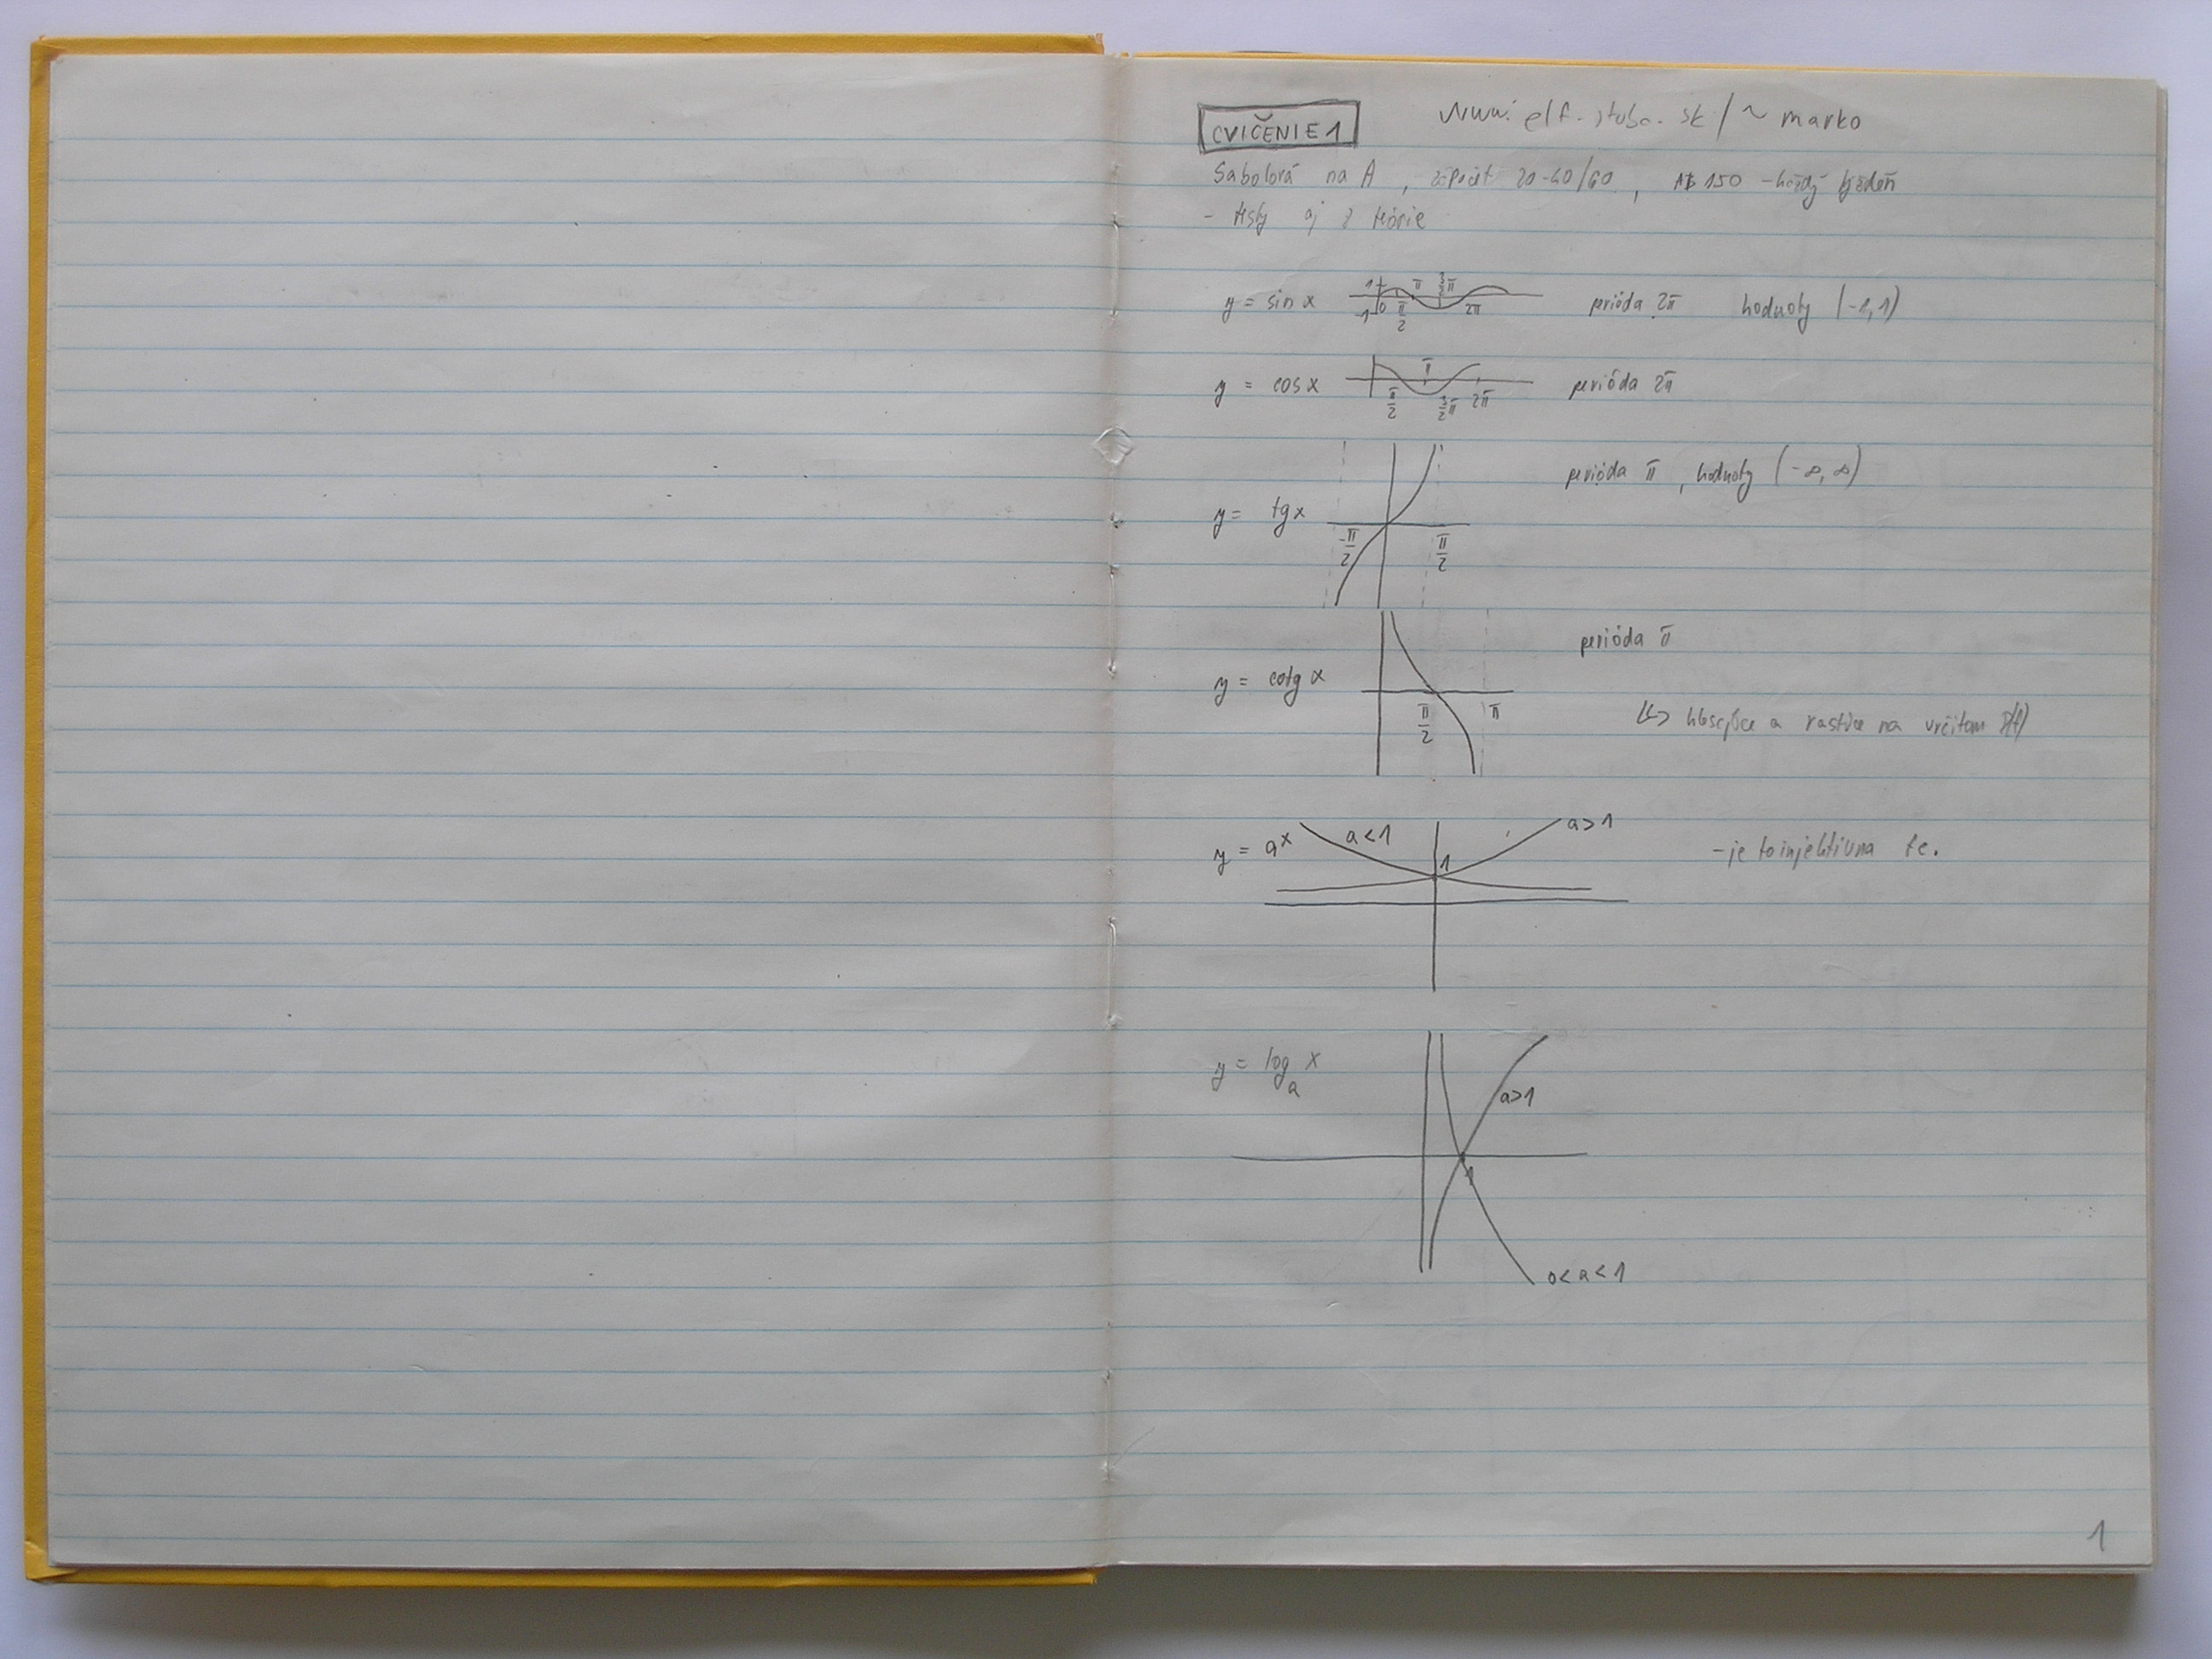 CVIČENIE 1
elf.stuba.sk/~marko
Sabolová na A, zápočet 20-40/60, AB 150 - každý týždeň
- testy aj z teórie
y = sin x 1 0 -1 π/2 π 3/2 π 2π perióda 2π hodnoty (-1,1)
y = cos x π/2 π 3/2 π 2π perióda 2π
perióda π, hodnoty (-∞, ∞)
y = tg x -π/2 π/2
perióda π
y = cotg x π/2 π
klesajúce a rastúce na určitom
y = a^x a<1 1 a>1 - je to injektívna fc.
y = log_a x
a>1
1
0<a<1
1